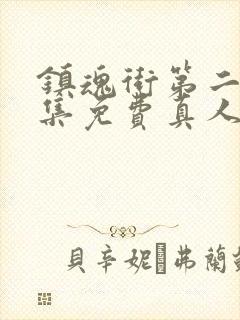 鎮魂街第二
集免費真人
貝辛妮 弗蘭